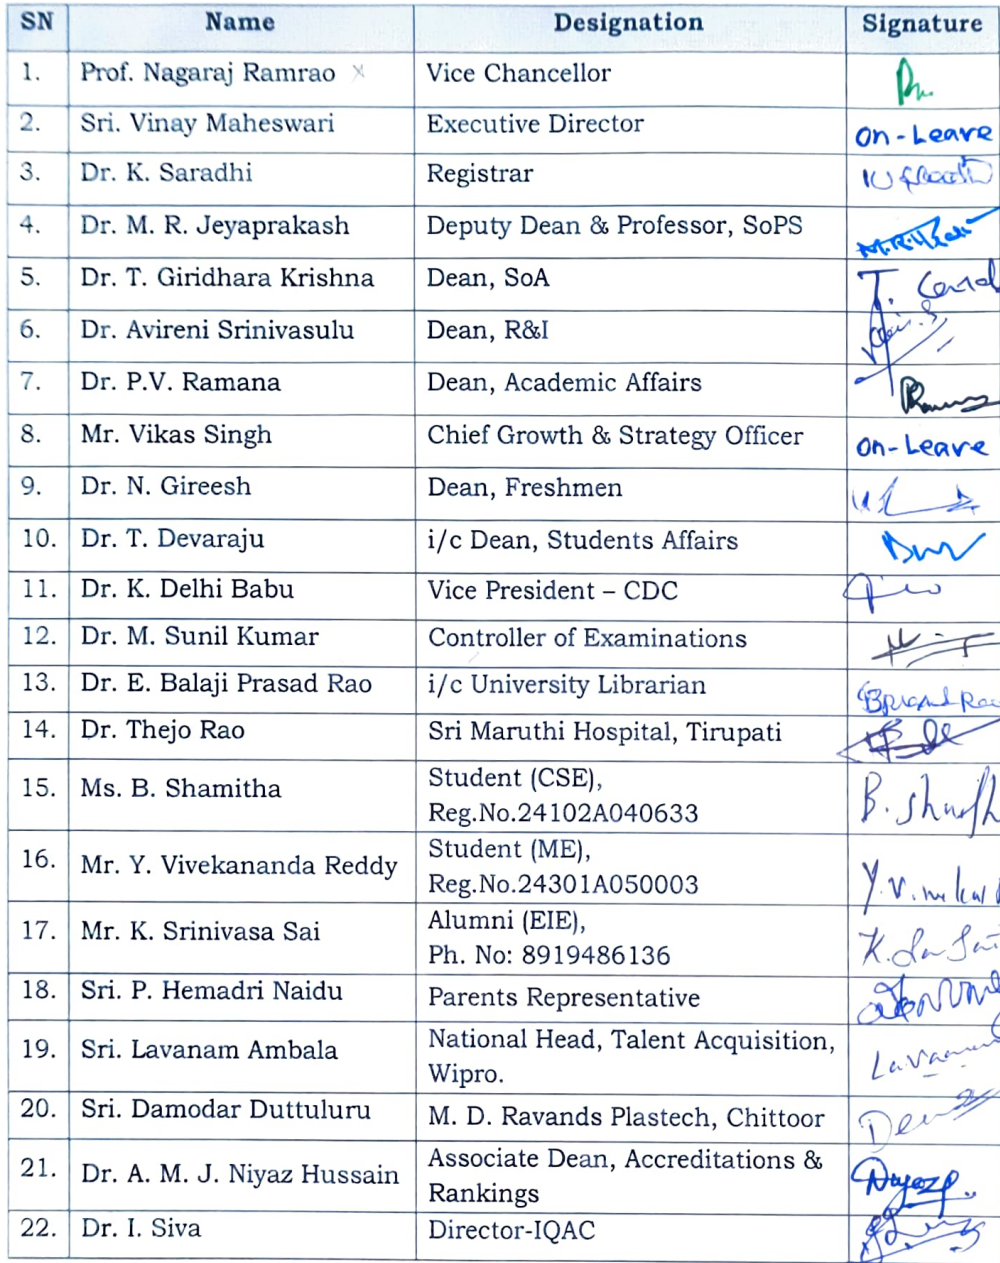 SN Name Designation Signature
1. Prof. Nagaraj Ramrao x Vice Chancellor
2. Sri. Vinay Maheswari Executive Director On-Leave
3. Dr. K. Saradhi Registrar
4. Dr. M. R. Jeyaprakash Deputy Dean & Professor, SoPS
5. Dr. T. Giridhara Krishna Dean, SoA
6. Dr. Avireni Srinivasulu Dean, R&I
7. Dr. P.V. Ramana Dean, Academic Affairs
8. Mr. Vikas Singh Chief Growth & Strategy Officer On-Leave
9. Dr. N. Gireesh Dean, Freshmen
10. Dr. T. Devaraju i/c Dean, Students Affairs
11. Dr. K. Delhi Babu Vice President – CDC
12. Dr. M. Sunil Kumar Controller of Examinations
13. Dr. E. Balaji Prasad Rao i/c University Librarian
14. Dr. Thejo Rao Sri Maruthi Hospital, Tirupati
15. Ms. B. Shamitha Student (CSE),
Reg.No.24102A040633
16. Mr. Y. Vivekananda Reddy Student (ME),
Reg.No.24301A050003
17. Mr. K. Srinivasa Sai Alumni (EIE),
Ph. No: 8919486136
18. Sri. P. Hemadri Naidu Parents Representative
19. Sri. Lavanam Ambala National Head, Talent Acquisition,
Wipro.
20. Sri. Damodar Duttuluru M. D. Ravands Plastech, Chittoor
21. Dr. A. M. J. Niyaz Hussain Associate Dean, Accreditations &
Rankings
22. Dr. I. Siva Director-IQAC